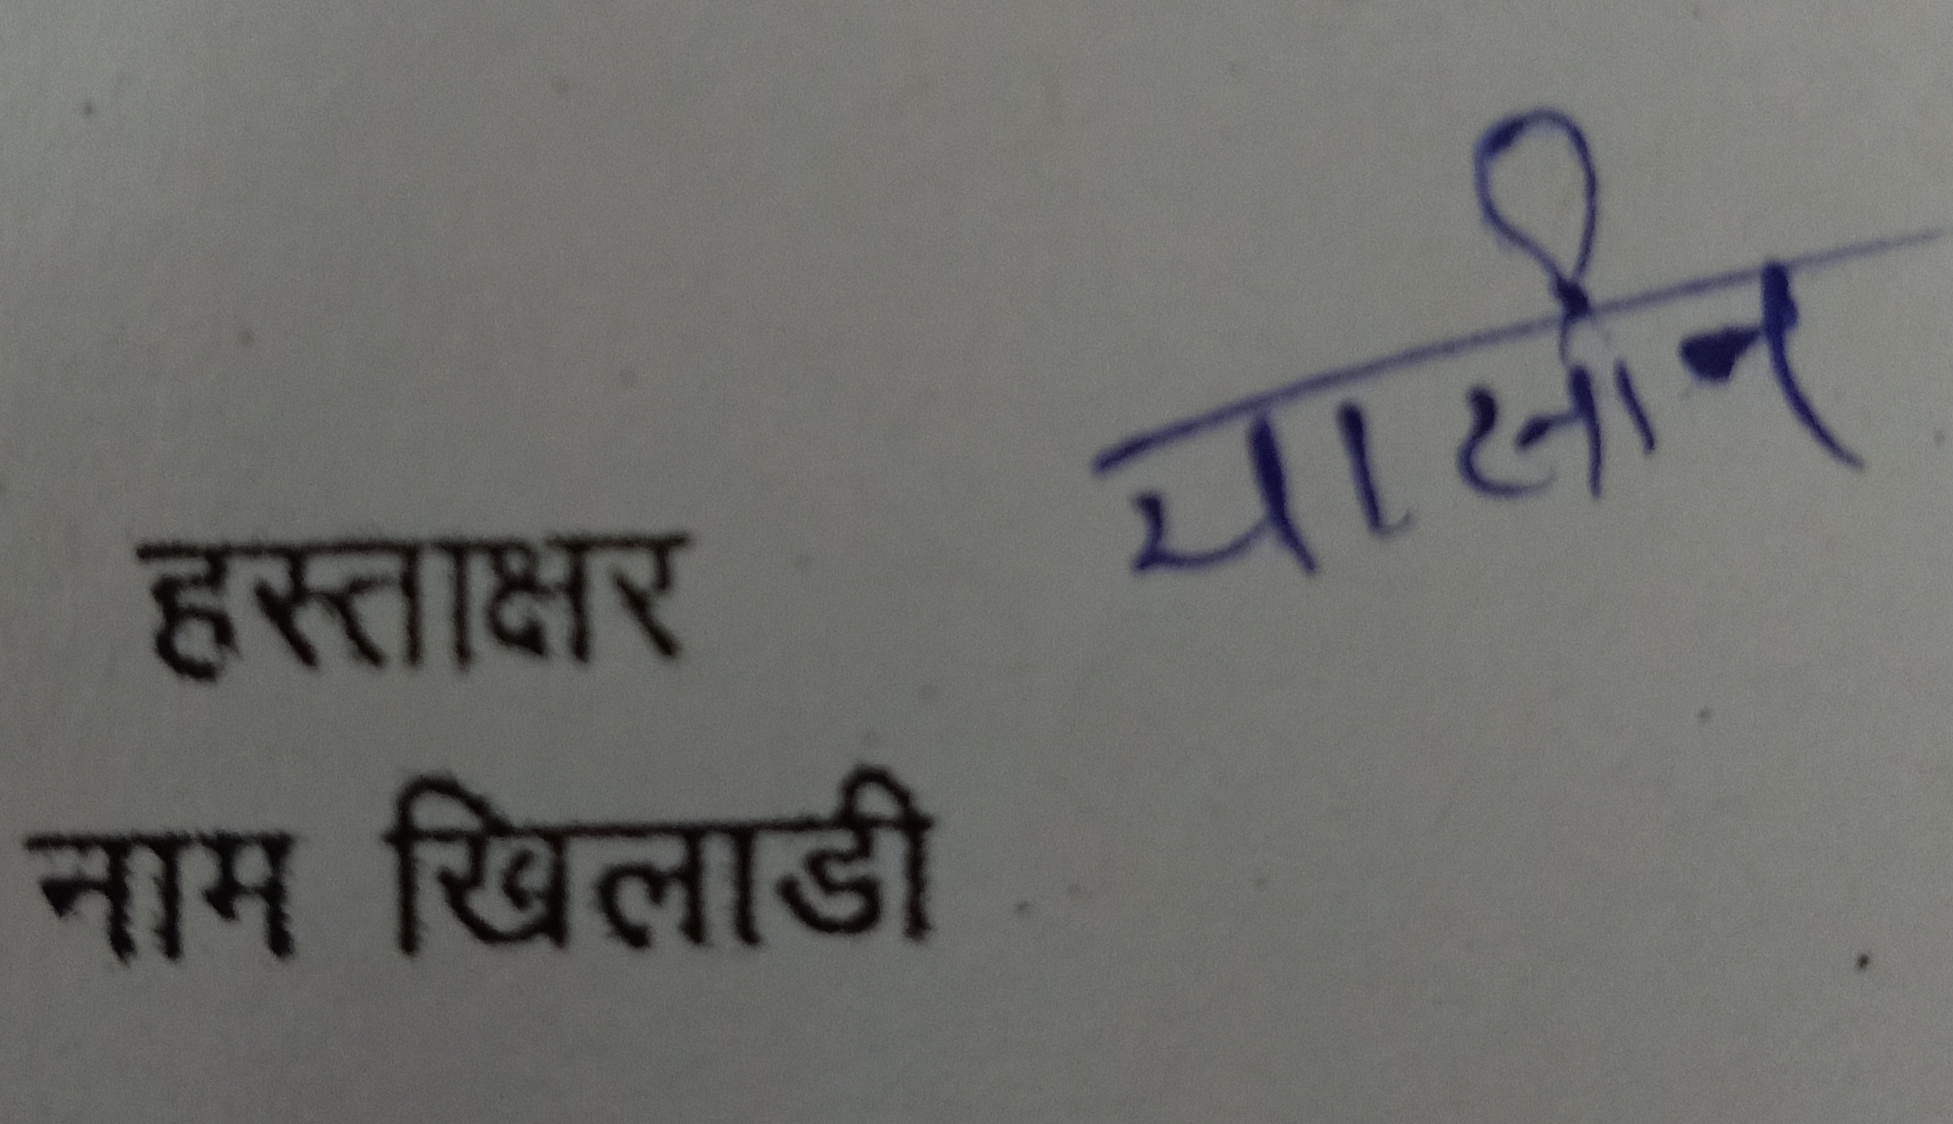 यासीन
हस्ताक्षर
नाम खिलाडी